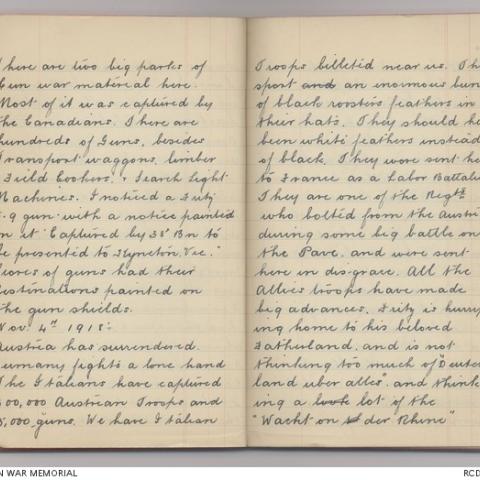 There are two big parks of
Hun war material here.
Most of it was captured by
the Canadians. There are
hundreds of Guns, besides
Transport waggons, limber
Field Cookers, & Search Light
Machines. I noticed a
5.9 gun with a notice painted
on it "Captured by 38 Bn to
be presented to Vic."
Scores of guns had their
destinations painted on
the gun shields.
Nov. 4th 1918:
Austria has surrendered.
Germany fights a lone hand
The Italians have captured
300,000 Austrian Troops and
5,000 guns. We have Italian
Troops billetid near us. They
sport and an enormous bunch
of black roosters feathers in
their hats. They should have
been white feathers instead
of black. They were sent here
to France as a Labor Battalion
They are one of the Regts
who bolted from the Austrians
during some big battle on
the Pave, and were sent
here in disgrace. All the
Allies troops have made
big advances. Fritz is hurry-
ing home to his beloved
Fatherland, and is not
thinking too much of "Deutch-
land uber alles", and think-
ing a look lot of the
"Wacht on der Rhine"
N WAR MEMORIAL
RCD